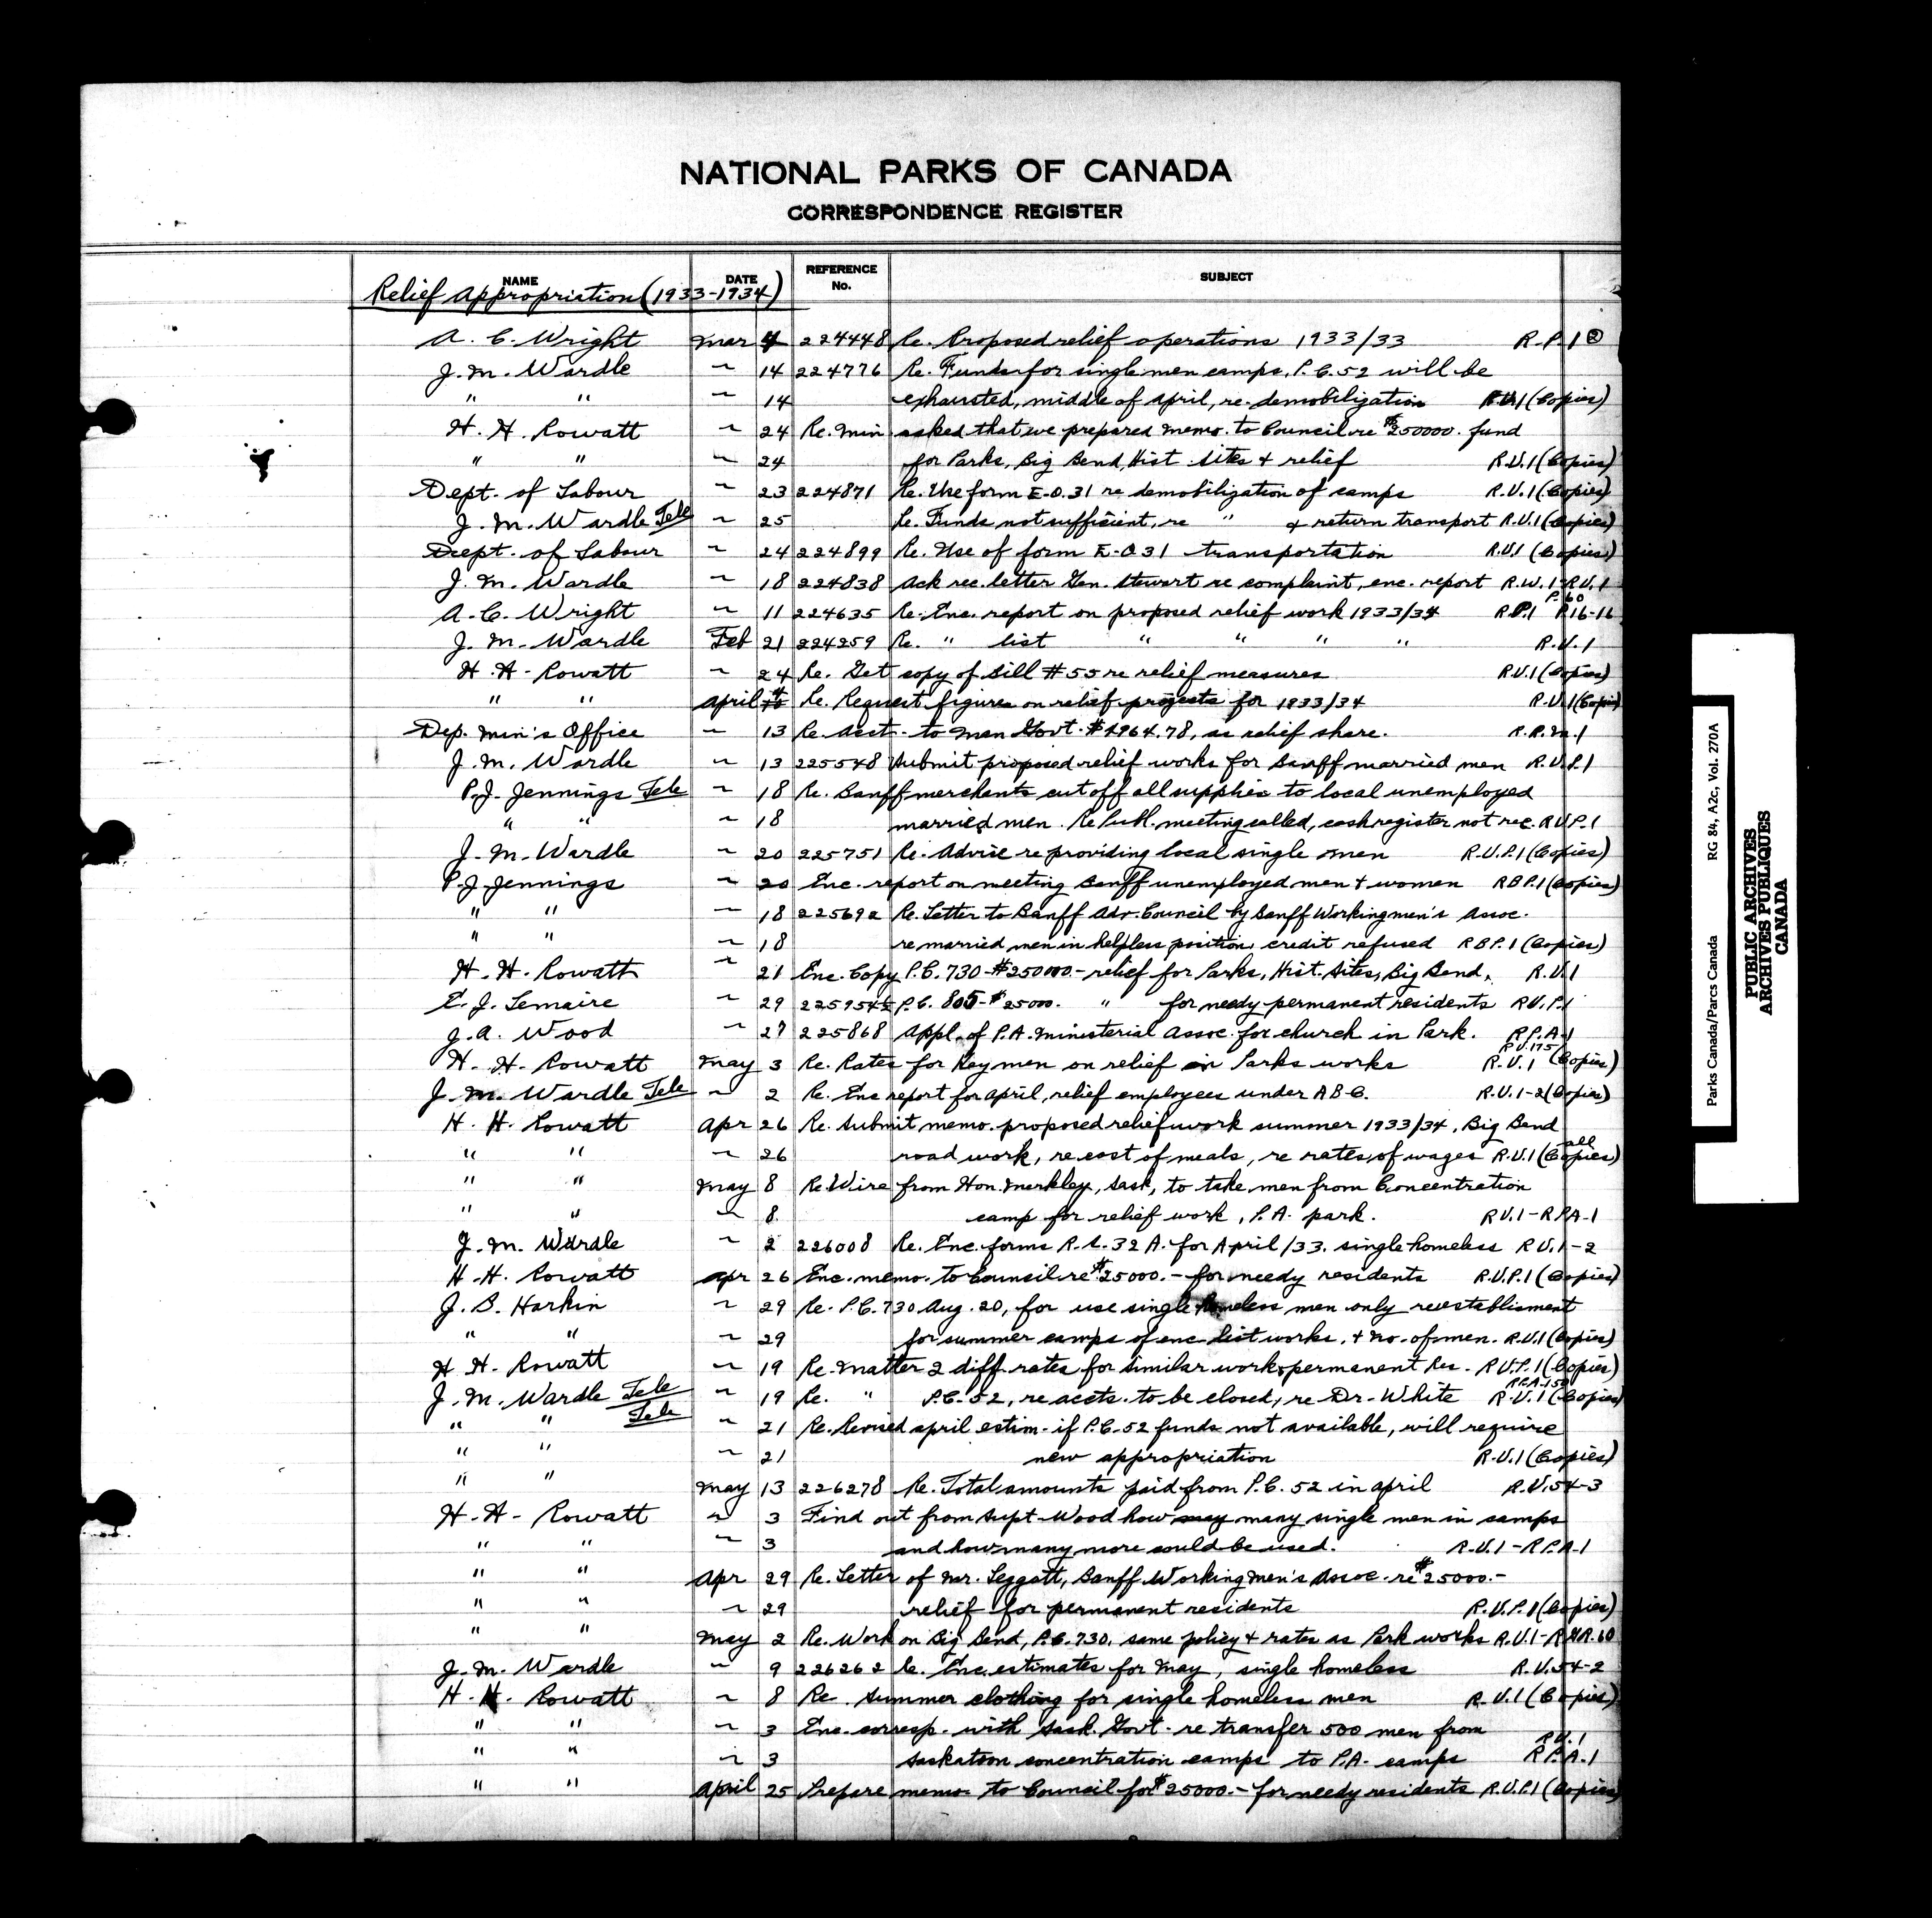 NATIONAL PARKS OF CANADA
CORRESPONDENCE REGISTER
NAME DATE REFERENCE No. SUBJECT
Relief Appropriation (1933-1934)
A. C. Wright Mar 4 224448 Re. Proposed relief operations 1933/33 R.P.1 2
J. M. Wardle " 14 224776 Re. Funds for single men camps, P.C. 52 will be
" " " 14 exhausted, middle of April, re. demobilization R.U.1 (Copies)
H. H. Rowatt " 24 Re. Min asked that we prepared memo. to Council re $250000. fund
" " " 24 for Parks, Big Bend, Hist. Sites & relief R.U.1 (Copies)
Dept. of Labour " 23 224871 Re. Use form E.O. 31 re demobilization of camps R.U.1 (Copies)
J. M. Wardle Tele " 25 Re. Funds not sufficient, re " & return transport R.U.1 (Copies)
Dept. of Labour " 24 224899 Re. Use of form E.O 31 transportation R.U.1 (Copies)
J. M. Wardle " 18 224838 Ack rec. letter Gen. Stewart re complaint, enc. report R.W.1-R.U.1
P. 60
A. C. Wright " 11 224635 Re. Enc. report on proposed relief work 1933/34 R.P.1 R16-16
J. M. Wardle Feb 21 224259 Re. " list " " " " R.U.1
H. H. Rowatt " 24 Re. Get copy of Bill #55 re relief measures R.U.1 (Copies)
" " April Re. Request figures on relief projects for 1933/34 R.U.1 (Copies)
Dep. Min's Office " 13 Re. Acct. to Man Govt. $4964.78, as relief share. R.R.M.1
J. M. Wardle " 13 225548 Submit proposed relief works for Banff married men R.U.P.1
P. J. Jennings Tele " 18 Re. Banff merchants cut off all supplies to local unemployed
" " " 18 married men. Re Publ. meeting called, cash register not rec. R.U.P.1
J. M. Wardle " 20 225751 Re. Advise re providing local single men R.U.P.1 (Copies)
P. J. Jennings " 20 Enc. report on meeting Banff unemployed men & women R B P.1 (Copies)
" " " 18 225692 Re. Letter to Banff Adv. Council by Banff Workingmen's Assoc.
" " " 18 re married men in helpless position, credit refused R B P.1 (Copies)
H. H. Rowatt " 21 Enc. Copy P.C. 730-$250000.- relief for Parks, Hist. Sites, Big Bend. R.U.1
E. J. Lemaire " 29 P.C. 805-$25000. " for needy permanent residents R.U.P.1
J. A. Wood " 27 225868 Appl. of P.A. Ministerial Assoc. for church in Park. R.P.A.1
R U.175
H. H. Rowatt May 3 Re. Rates for Key men on relief in Parks works R.U.1 (Copies)
J. M. Wardle Tele " 2 Re. Enc report for April, relief employees under A B C. R.U.1-2 (Copies)
H. H. Rowatt Apr 26 Re. Submit memo. proposed relief work summer 1933/34, Big Bend
" " " 26 road work, re cost of meals, re rates of wages R.U.1 (all Copies)
" " May 8 Re. Wire from Hon. Merkley, Sask, to take men from Concentration
" " " 8 camp for relief work, P.A. park. R U.1-R P.A-1
J. M. Wardle " 2 226008 Re. Enc. forms R.S. 32 A. for April/33. single homeless R U.1-2
H. H. Rowatt Apr 26 Enc. memo. to Council re $25000.- for needy residents R.U.P.1 (Copies)
J. B. Harkin " 29 Re. P.C. 730 Aug. 20, for use single homeless men only reestablisment
" " " 29 for summer camps of enc list works, & no. of men. R.U.1 (Copies)
H. H. Rowatt " 19 Re. Matter 2 diff. rates for similar works permanent Res. R.U.P.1 (Copies)
J. M. Wardle Tele " 19 Re. " P.C. 52, re accts. to be closed, re Dr. White R.U.1 (Copies)
" " Tele " 21 Re. Revised April estim. if P.C. 52 funds not available, will require
" " " 21 new appropriation R.U.1 (Copies)
" " May 13 226278 Re. Total amounts paid from P.C. 52 in April R.U.54-3
H. H. Rowatt " 3 Find out from Supt. Wood how many single men in camps
" " " 3 and how many more could be used. R.U.1-R P.A.1
" " Apr 29 Re. Letter of Mr. Leggatt, Banff Workingmen's Assoc. re $25000.-
" " " 29 relief for permanent residents R.U.P.1 (Copies)
" " May 2 Re. Work on Big Bend, P.C. 730. same policy & rates as Park works R.U.1-
J. M. Wardle " 9 226262 Re. Enc. estimates for May, single homeless R.U.54-2
H. H. Rowatt " 8 Re. Summer clothing for single homeless men R.U.1 (Copies)
" " " 3 Enc. corresp. with Sask. Govt. re transfer 500 men from R U.1
" " " 3 Saskatoon concentration camps to P.A. camps R P.A.1
" " April 25 Prepare memo to Council for $25000.- for needy residents R.U.P.1 (Copies)
Parks Canada/Parcs Canada RG 84, A2c, Vol. 270A
PUBLIC ARCHIVES
ARCHIVES PUBLIQUES
CANADA